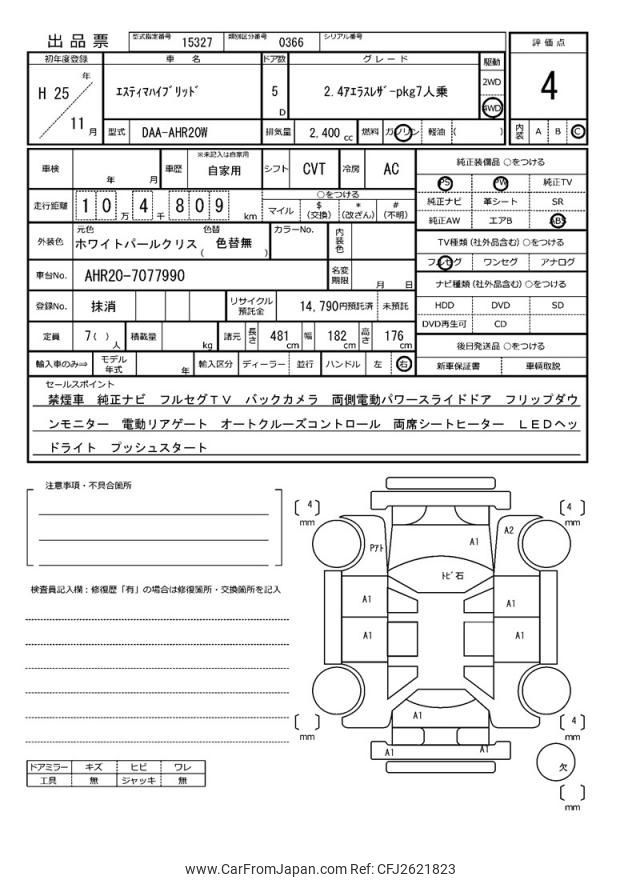 出品票 型式指定番号 15327 類別区分番号 0366 シリアル番号
評価点
4
内装 A B C
初年度登録 車名 ドア数 グレード 駆動
H 25 年 エスティマハイブリッド 5 D 2.4アエラスレザｰpkg7人乗 2WD
4WD
11 月 型式 DAA-AHR20W 排気量 2,400 cc 燃料 ガソリン 軽油 ( )
車検 年 月 車歴 ※未記入は自家用 自家用 シフト CVT 冷房 AC
走行距離 1 0 万 4 千 8 0 9 km
○をつける
マイル $(交換) *(改ざん) #(不明)
外装色 元色 ホワイトパールクリス 色替 ( 色替無 ) カラーNo. 内装色
車台No. AHR20-7077990 名変期限 月 日
登録No. 抹消 リサイクル預託金 14,790円預託済 未預託
定員 7( ) 人 積載量 kg 諸元 長さ 481 cm 幅 182 cm 高さ 176 cm
輸入車のみ⇒ モデル年式 年 輸入区分 ディーラー 並行 ハンドル 左 右
純正装備品 ○をつける
PS PW 純正TV
純正ナビ 革シート SR
純正AW エアB ABS
TV種類(社外品含む)○をつける
フルセグ ワンセグ アナログ
ナビ種類(社外品含む)○をつける
HDD DVD SD
DVD再生可 CD
後日発送品 ○をつける
新車保証書 車輌取説
セールスポイント
禁煙車 純正ナビ フルセグTV バックカメラ 両側電動パワースライドドア フリップダウ
ンモニター 電動リアゲート オートクルーズコントロール 両席シートヒーター LEDヘッ
ドライト プッシュスタート
注意事項・不具合箇所
検査員記入欄：修復歴「有」の場合は修復箇所・交換箇所を記入
ドアミラー キズ ヒビ ワレ
工具 無 ジャッキ 無
4
mm
4
mm
Pｱﾄ
A1
A2
ﾄﾋﾞ石
A1
A1
A1
A1
A1
A1
A1
mm
4
mm
欠
mm
www.CarFromJapan.com Ref: CFJ2621823